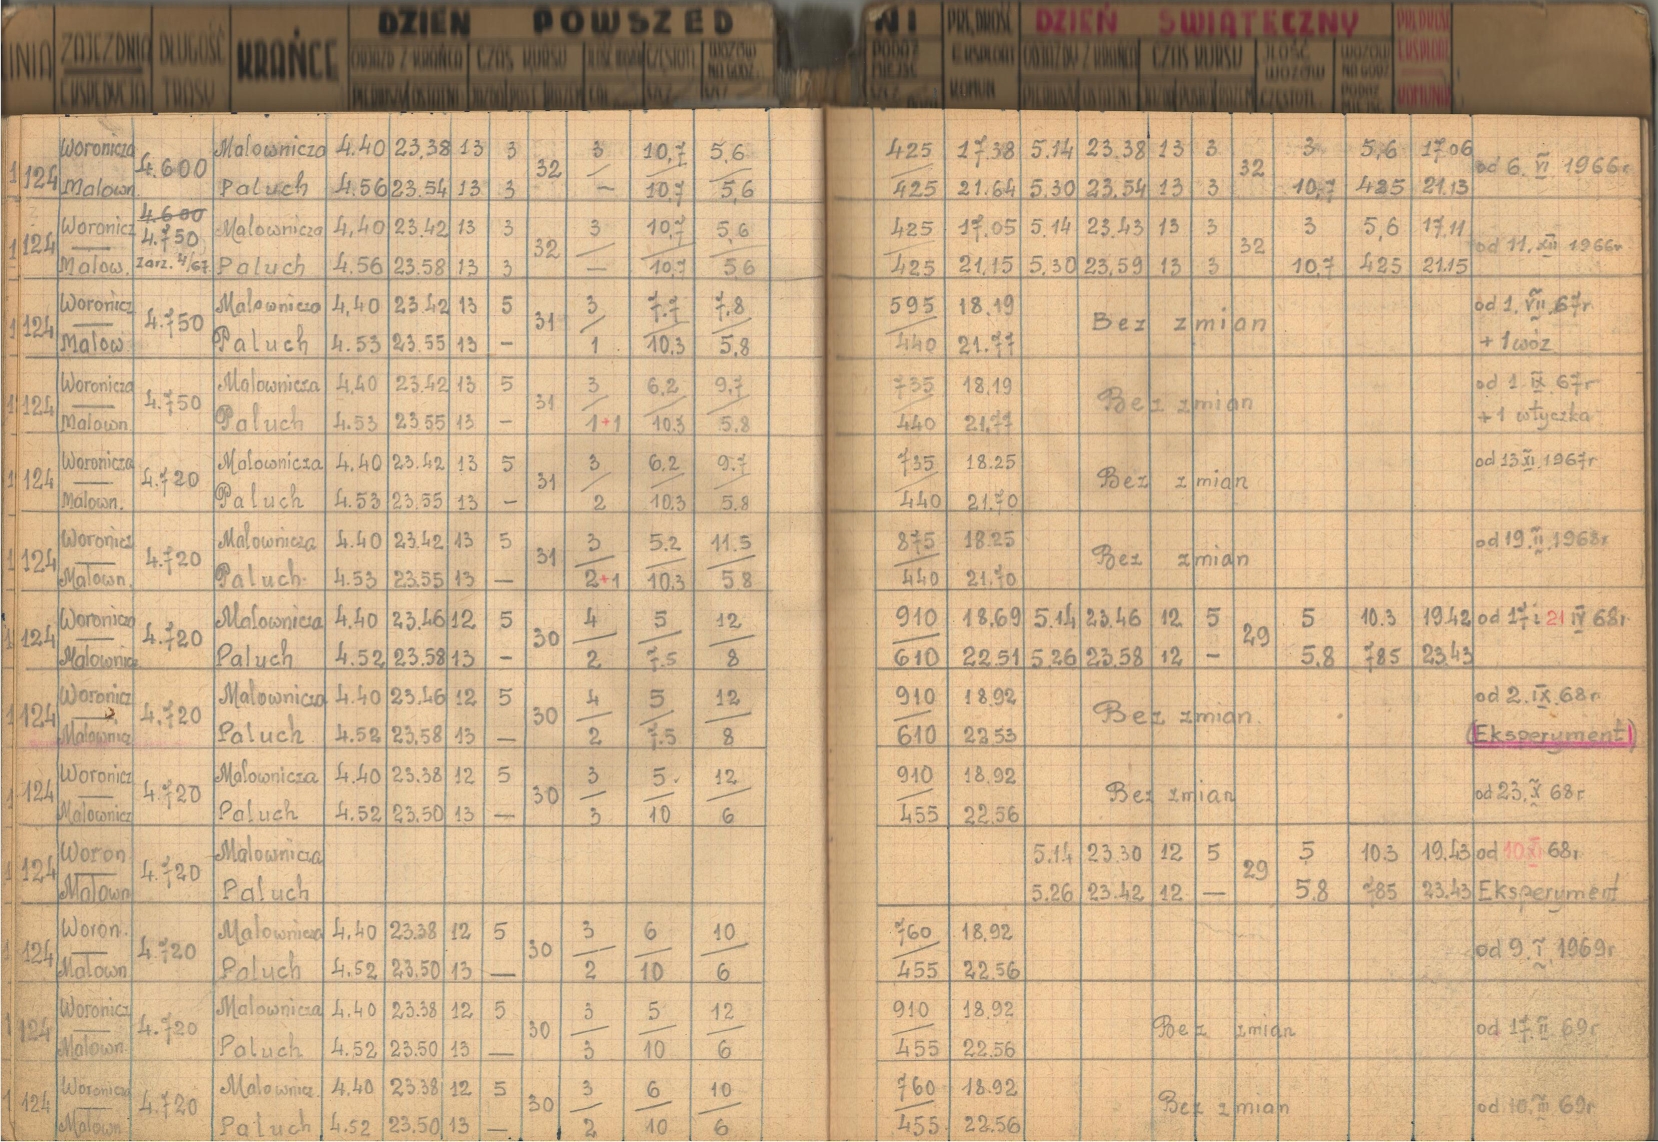 DZIEŃ POWSZEDNI DZIEŃ ŚWIĄTECZNY
ZAJEZDNIA EKSPEDYCJA DŁUGOŚĆ TRASY KRAŃCE ODJAZD Z KRAŃCA CZAS KURSU
Woronicza Malownicza 4.40 23.38 13 3 3 10,7 5,6 425 17.38 5.14 23.38 13 3 3 5,6 17.06
124 4.600 32 32 od 6. VI 1966r
Malown. Paluch 4.56 23.54 13 3 – 10,7 5,6 425 21.64 5.30 23.54 13 3 10,7 425 21.13
4.600
Woronicz 4.750 Malownicza 4,40 23.42 13 3 3 10,7 5,6 425 17.05 5.14 23.43 13 3 3 5,6 17.11
124 32 32 od 11. XII 1966r
Malow. zarz. 4/67 Paluch 4.56 23.58 13 3 — 10,7 5,6 425 21,15 5.30 23,59 13 3 10,7 425 21.15
Woronicz Malownicza 4,40 23.42 13 5 3 7.7 7,8 595 18.19 od 1. VII 67r
124 4.750 31 Bez zmian
Malow. Paluch 4.53 23.55 13 – 1 10.3 5,8 440 21.77 + 1 wóz
Woronicza Malownicza 4.40 23.42 13 5 3 6.2 9,7 735 18.19 od 1. IX 67r
124 4.750 31 Bez zmian
Malown. Paluch 4.53 23.55 13 – 1+1 10.3 5.8 440 21,77 + 1 wtyczka
Woronicza Malownicza 4,40 23.42 13 5 3 6,2 9.7 735 18.25 od 13 XI 1967r
124 4.720 31 Bez zmian
Malown. Paluch 4.53 23.55 13 – 2 10.3 5.8 440 21.70
Woronicz Malownicza 4.40 23.42 13 5 3 5.2 11.5 875 18.25 od 19. II 1968r
124 4.720 31 Bez zmian
Malown. Paluch 4.53 23.55 13 — 2+1 10,3 5.8 440 21.70
Woronicza Malownicza 4.40 23.46 12 5 4 5 12 910 18,69 5.14 23.46 12 5 5 10.3 19.42 od 17 i 21 IV 68r
124 4.720 30 29
Malownicz Paluch 4.52 23.58 13 – 2 7.5 8 610 22.51 5.26 23.58 12 – 5.8 785 23.43
Woronicz Malownicza 4.40 23.46 12 5 4 5 12 910 18.92 od 2. IX 68r
124 4.720 30 Bez zmian
Malownicz Paluch 4.52 23.58 13 — 2 7.5 8 610 22.53 (Eksperyment)
Woronicz Malownicza 4.40 23.38 12 5 3 5. 12 910 18.92
124 4.720 30 Bez zmian od 23. X 68r
Malownicz Paluch 4.52 23.50 13 — 3 10 6 455 22.56
Woron Malownicza 5.14 23.30 12 5 5 10.3 19.43 od 10 XI 68r
124 4.720 29
Malown Paluch 5.26 23.42 12 — 5.8 785 23.43 Eksperyment
Woron. Malownicza 4.40 23.38 12 5 3 6 10 760 18,92
124 4.720 30 od 9. I. 1969r
Malown Paluch 4.52 23.50 13 — 2 10 6 455 22.56
Woronicz Malownicza 4.40 23.38 12 5 3 5 12 910 18.92
124 4.720 30 Bez zmian od 17. II 69r
Malown. Paluch 4.52 23.50 13 — 3 10 6 455 22.56
Woronicza Malownicz. 4.40 23.38 12 5 3 6 10 760 18.92
124 4.720 30 Bez zmian od 10. III 69r
Malown Paluch 4.52 23.50 13 — 2 10 6 455 22.56